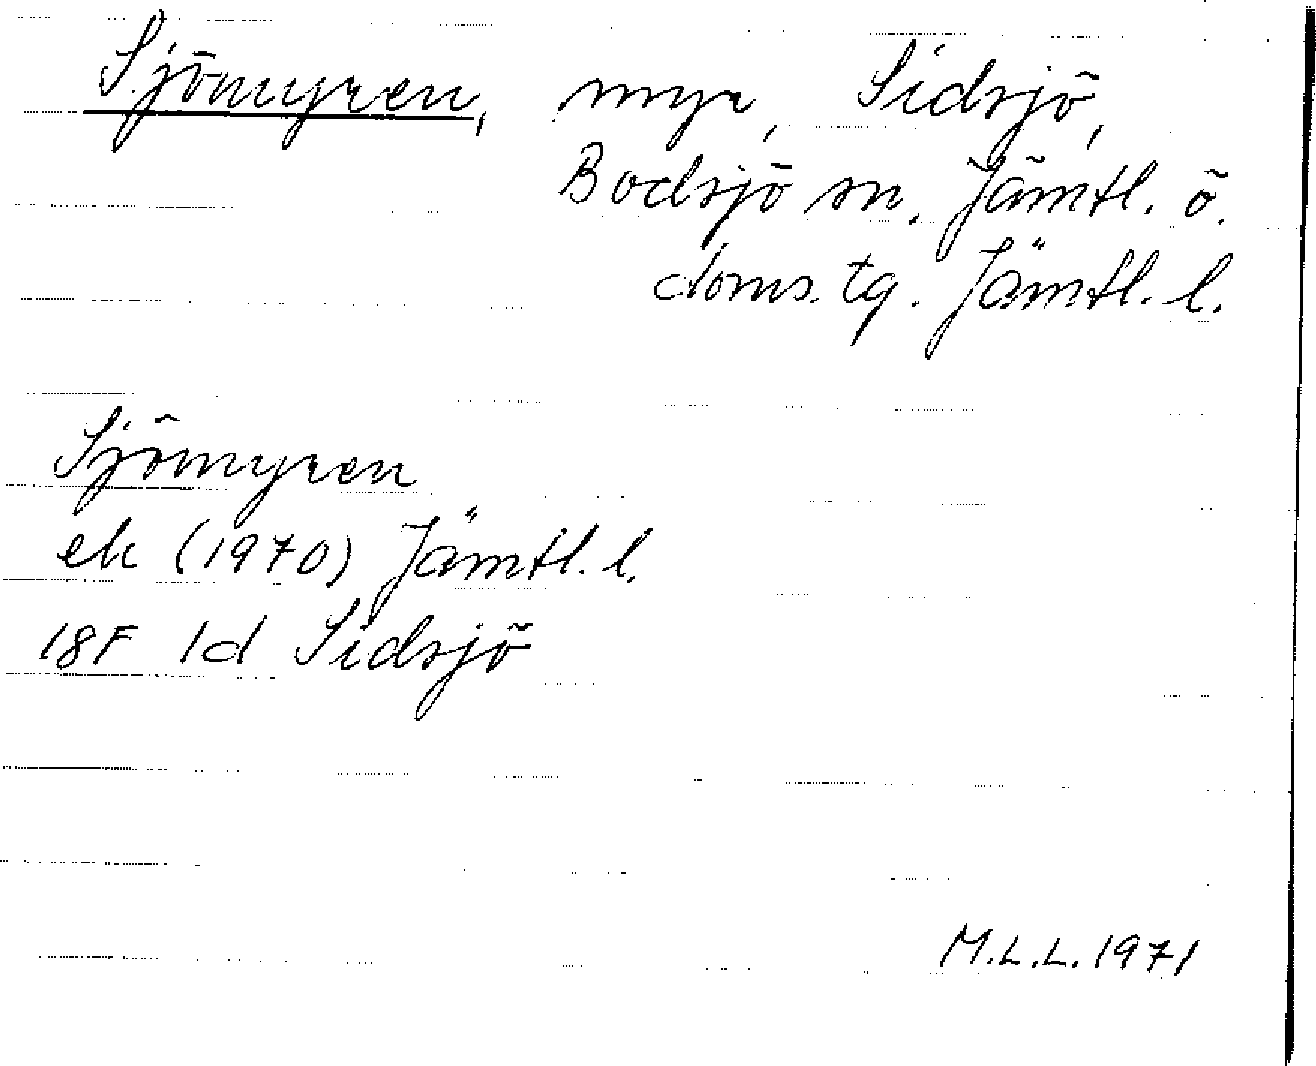 Sjömyren, myr, Sidsjö,
Bodsjö sn. Jämtl. ö.
doms. tg. Jämtl. l.
Sjömyren
ek (1970) Jämtl. l.
18F 1d Sidsjö
M.L.L. 1971